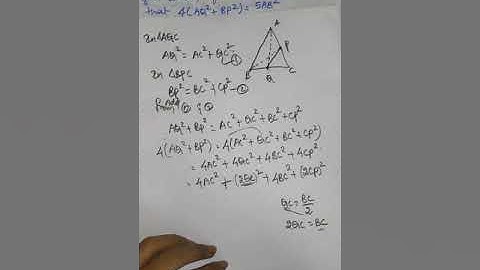 that 4(AQ²+BP²) = 5AB²
In △AQC
AQ² = AC² + QC² —①
In △BPC
BP² = BC² + CP² —②
From ① & ②
AQ² + BP² = AC² + QC² + BC² + CP²
4(AQ² + BP²) = 4(AC² + QC² + BC² + CP²)
= 4AC² + 4QC² + 4BC² + 4CP²
= 4AC² + (2QC)² + 4BC² + (2CP)²
QC = BC/2
2QC = BC
A
P
B
Q
C